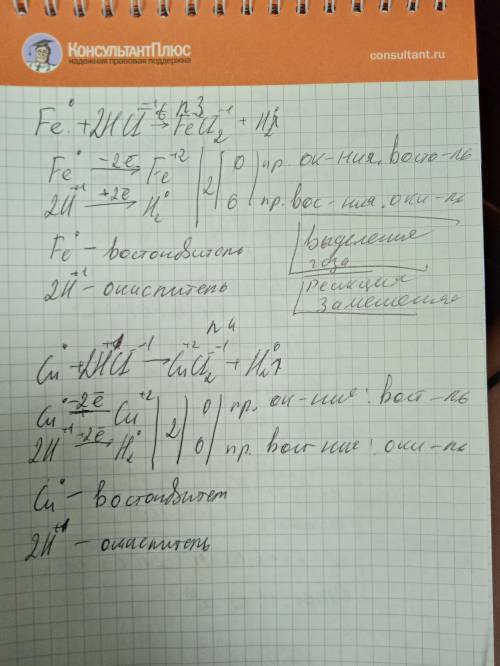 КонсультантПлюс
надежная правовая поддержка
consultant.ru
n3
Fe⁰ + 2HCl⁻¹ →t FeCl₂⁻¹ + H₂⁰
Fe⁰ −2e̅→ Fe⁺² | 2 | 0 | пр. ок-ния, восто-ль
2H⁺¹ +2e̅→ H₂⁰ | 0 | пр. вос-ния. оки-ль
Fe⁰ - востоновитель
2H⁺¹ - окислитель
Выделения
газа
Реакция
Замещения
n4
Cu⁰ + 2H⁺¹Cl⁻¹ → Cu⁺²Cl₂⁻¹ + H₂⁰↑
Cu⁰ −2e̅→ Cu⁺² | 2 | 0 | пр. ок-ния: вост-ль
2H⁺¹ −2e̅→ H₂⁰ | 0 | пр. вост-ние: оки-ль
Cu⁰ - востоновител
2H⁺¹ - окислитель